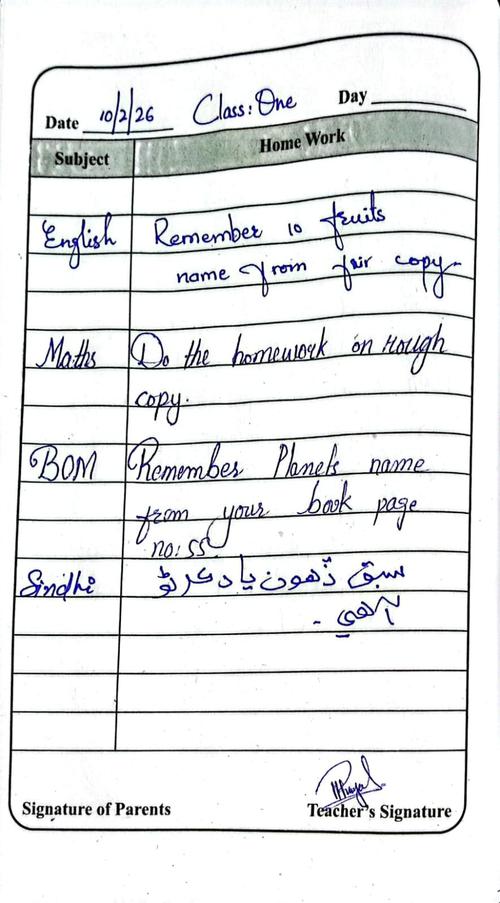 Date 10/2/26 Class: One Day
Subject Home Work
English Remember 10 fruits
name from fair copy.
Maths Do the homework on rough
copy.
BOM Remember Planets name
from your book page
no: 55
Sindhi سبق ڏهون ياد ڪرڻو
آهي.
Signature of Parents Teacher's Signature